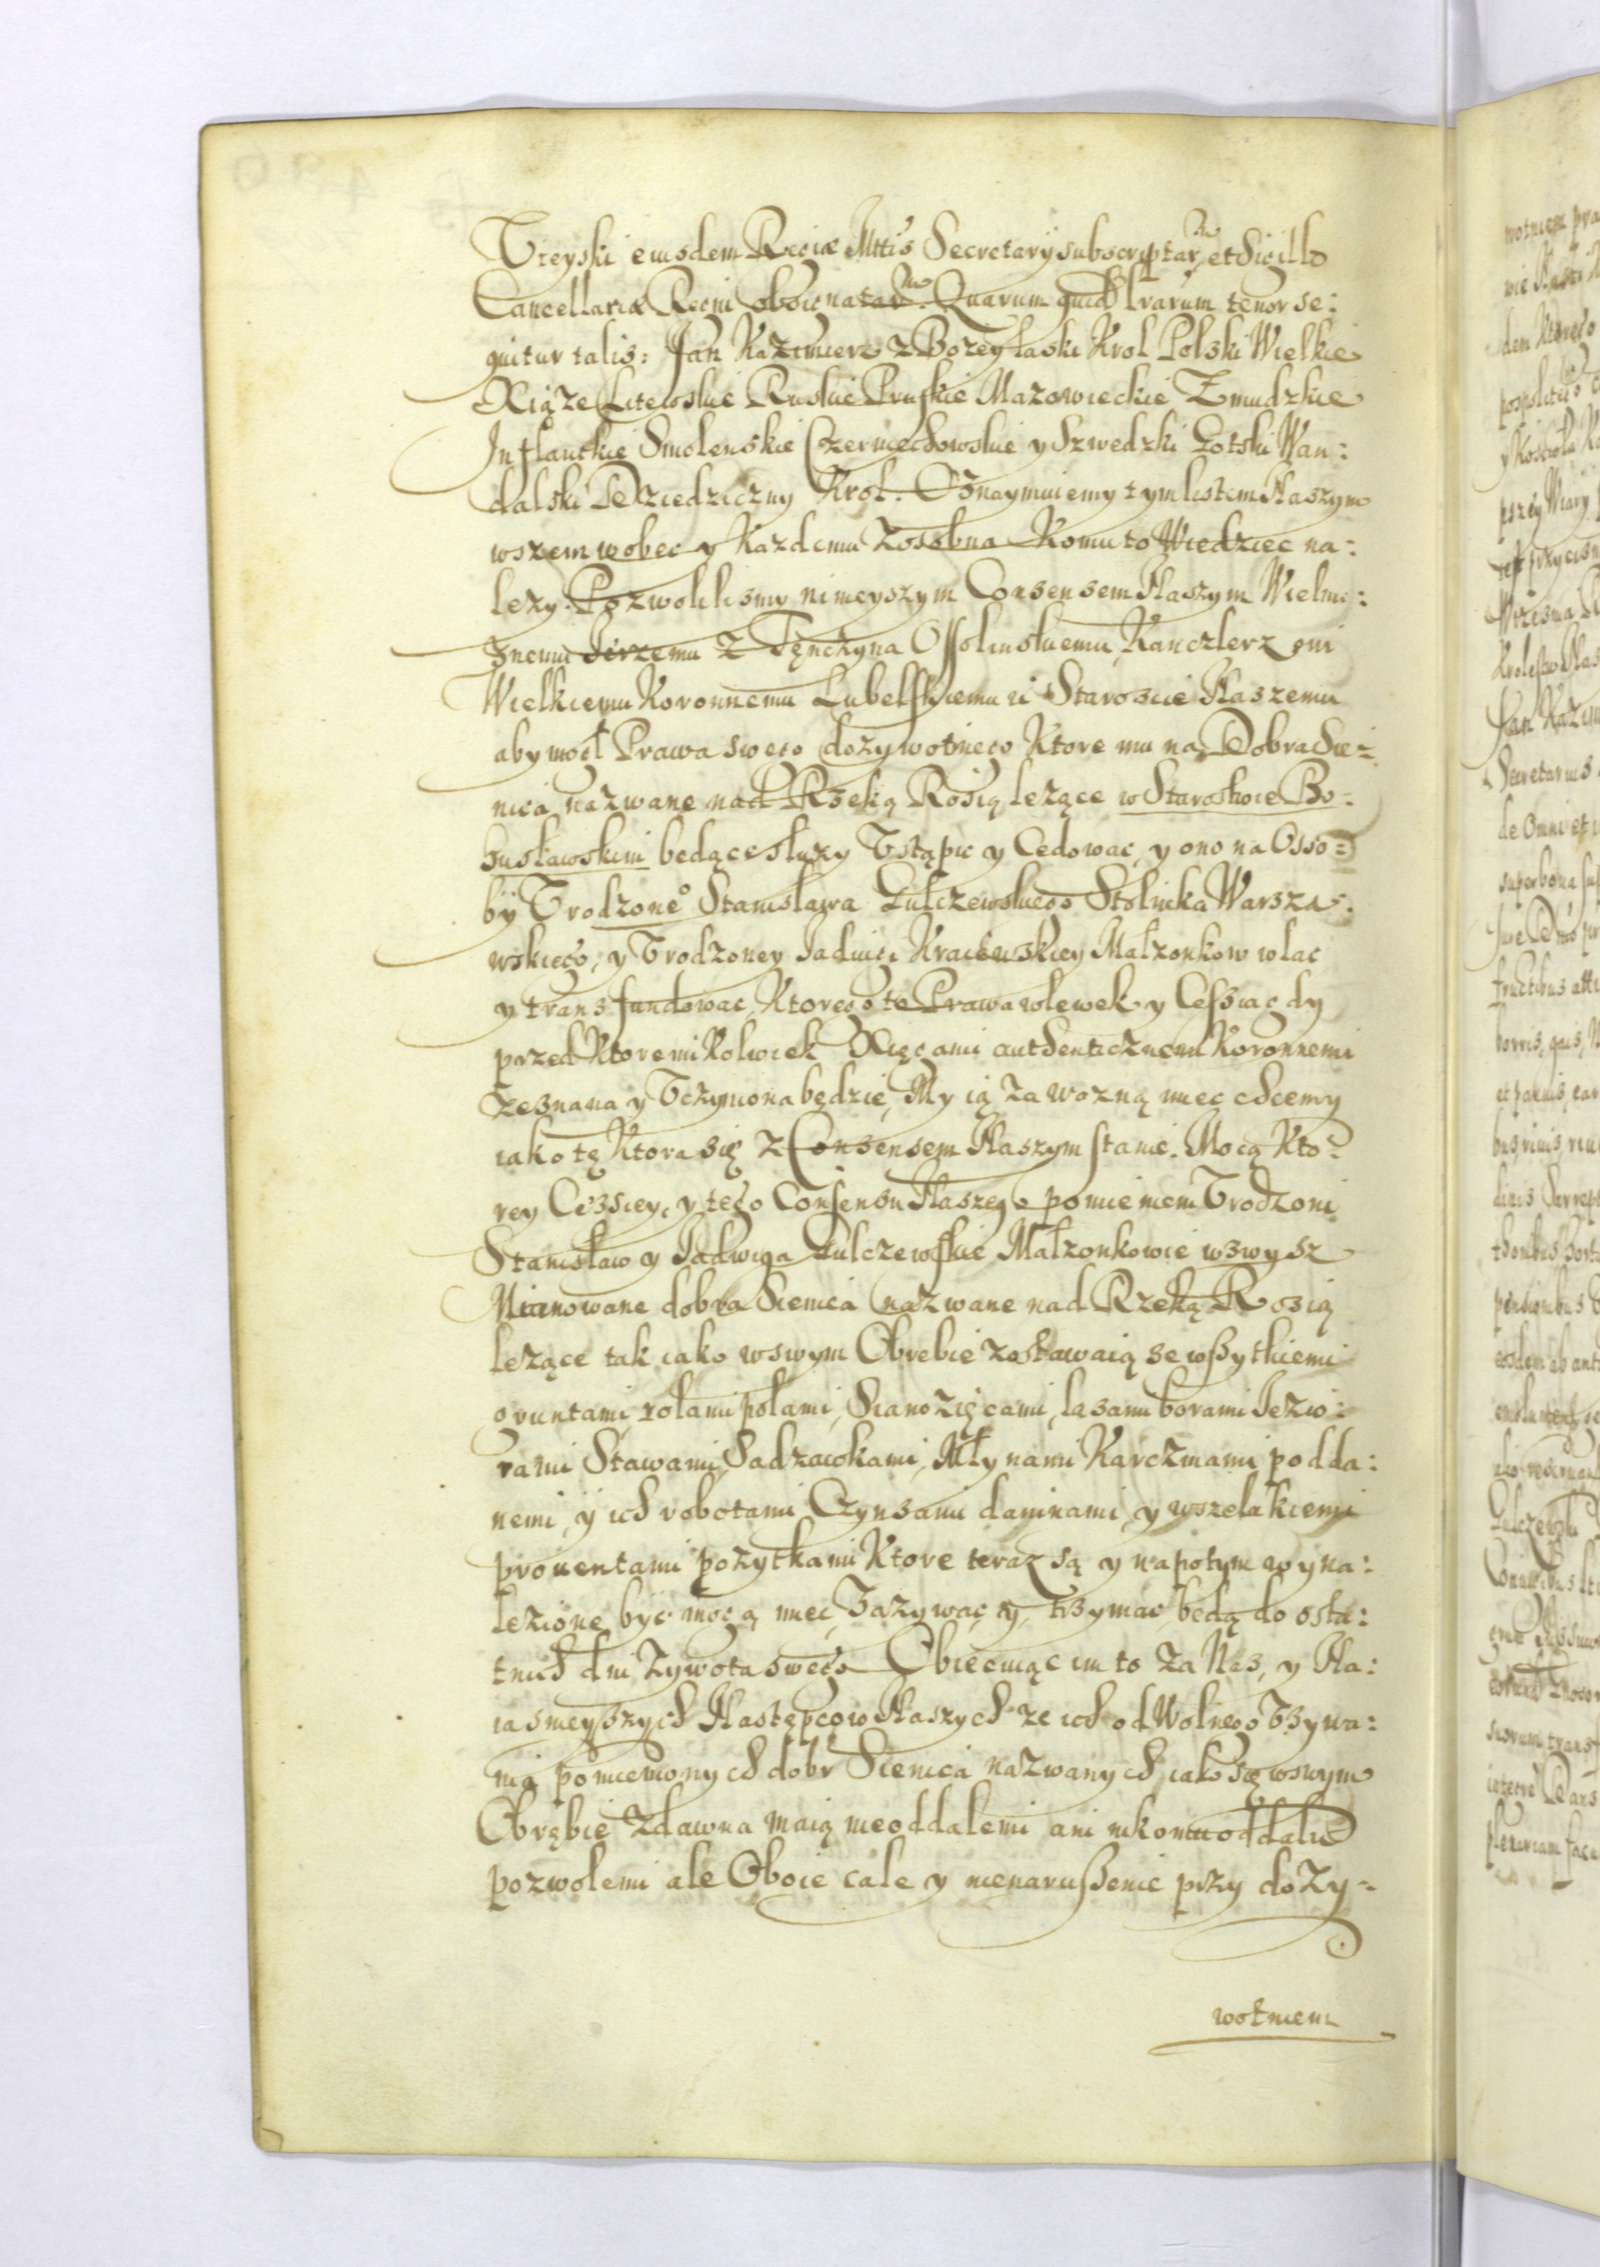 Treyski eiusdem Regiæ Mttis Secretarÿ subscriptar, et Sigillo
Cancellariæ Regni obsignatar. Quarum quid lrarum tenor se:
quitur talis: Jan Kazimierz z Bozey łaski Krol Polski Wielkie
Xiąze Litewskie Ruskie Pruskie Mazowieckie Zmudzkie
Inflantkie Smolenskie Czerniechowskie y Szwedzki Gotski Wan:
dalski Dziedziczny Krol. Oznaymuiemy tym listem Naszym
wszem wobec y Kazdemu Zosobna Komu to Wiedziec na:
lezy. Pozwolilismy ninieyszym Consensem Naszym Wielmo:
znemu Jerzemu z Tęnczyna Ossolinskiemu, Kanclerz owi
Wielkiemu Koronnemu Lubelskiemu ii Staroscie Naszemu
aby mogł Prawa swego dozywotnego Ktore mu na Dobra Sie:
nica nazwane nad Rzeką Rosią lezące w Starostwie Bo:
husławskim będące słuzy Vstąpic y Cedowac, y ono na Osso:
bÿ Vrodzone° Stanisława Lulczewskiego Stolnika Warsza:
wskiego, y Vrodzoney Jadwigi Kraiewskiey Małzonkow wlac
y transfundowac, Ktorego te Prawa wlewek y Cessia gdy
przed Ktoremi Kolwiek Xięgami authenticznemi Koronnemi
Zeznana y Vczyniona będzie, My ią za wazną miec chcemy
iako tę Ktora się z Consensem Naszym stanie. Mocą Kto:
rey Cessiey, y tego Consensu Naszego pomienieni Vrodzoni
Stanisław y Jadwiga Lulczewskie Małzonkowie wzwysz
Mianowane dobra Sienica nazwane nad Rzeką Rosią
lezące tak iako wswym Obrebie zostawaią ze wszytkiemi
gruntami, rolami polami, Sianozięcami, lasami borami Jezio:
rami Stawami, Sadzawkami, Młynami Karczmami podda:
nemi, ÿ ich robotami Czynszami daninami, y wszelakiemi
prouentami pozytkami Ktore teraz są y napotym wyna:
lezione być mogą miec, Vazywac y, trzymac będą do osta:
tnich dni Zywota swego Obiecuiąc im to Za Nas, y Na:
iasnieyszych Następcow Naszych ze ich od Wolnego Vzywa:
nia pomienionych dobr Sienica nazwanych iako się wswym
Obrębie zdawna maią nieoddalemi ani nikomu oddalić
pozwolemi ale Oboie cale y nienaruszenie przy dozy:
wotniem